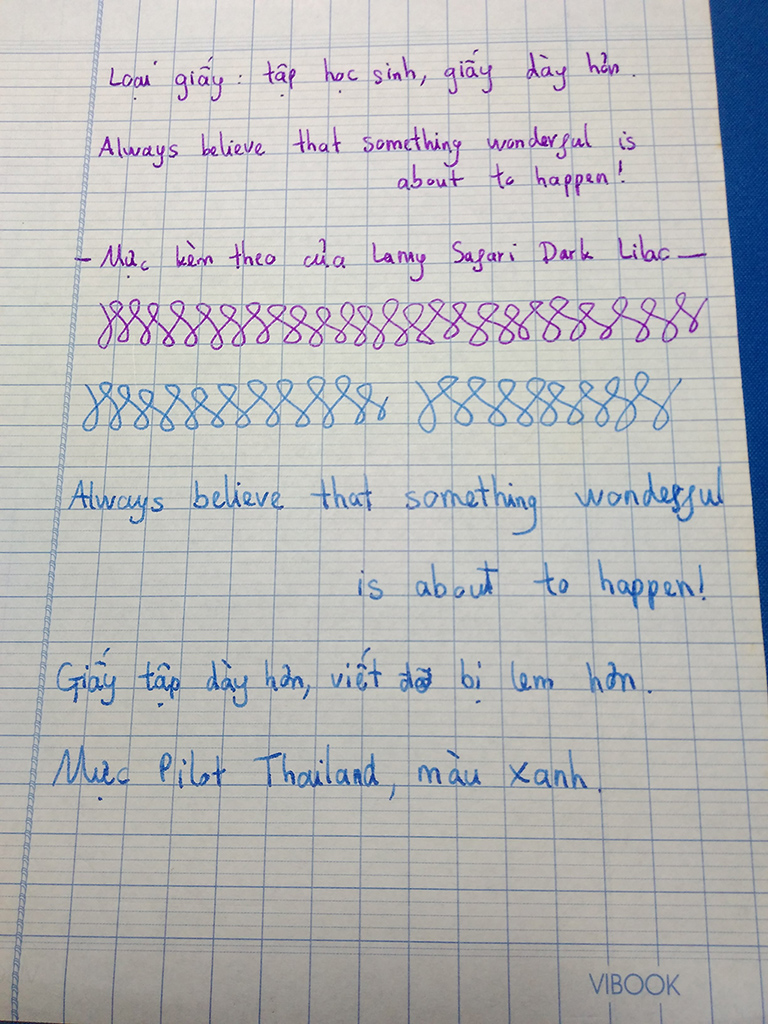 Loại giấy: tập học sinh, giấy dày hơn.
Always believe that something wonderful is
about to happen!
- Mực kèm theo của Lamy Safari Dark Lilac -
Always believe that something wonderful
is about to happen!
Giấy tập dày hơn, viết đỡ bị lem hơn.
Mực Pilot Thailand, màu xanh.
VIBOOK